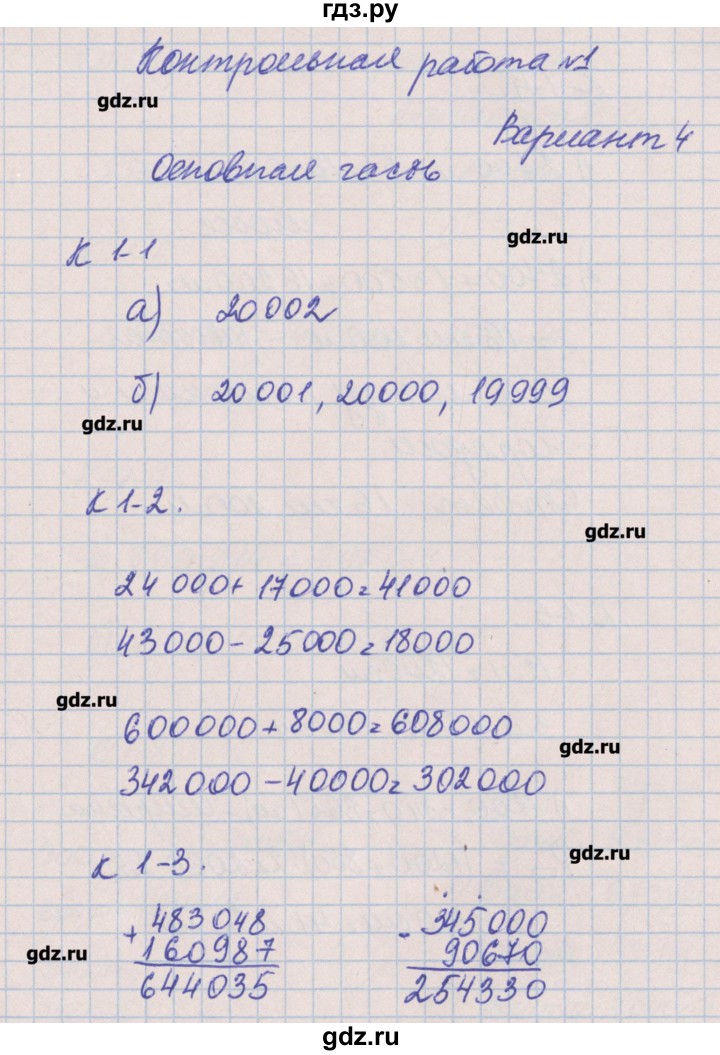 гдз.ру
Контрольная работа №1
gdz.ru
Вариант 4
Основная часть
gdz.ru
К 1-1
а) 20002
б) 20001, 20000, 19999
gdz.ru
К 1-2.
gdz.ru
24 000 + 17000 = 41000
43000 - 25000 = 18000
gdz.ru
600000 + 8000 = 608000
gdz.ru
342000 - 40000 = 302000
К 1-3.
gdz.ru
+ 483048 - 345000
gdz.ru 160987 90670
644035 254330
gdz.ru